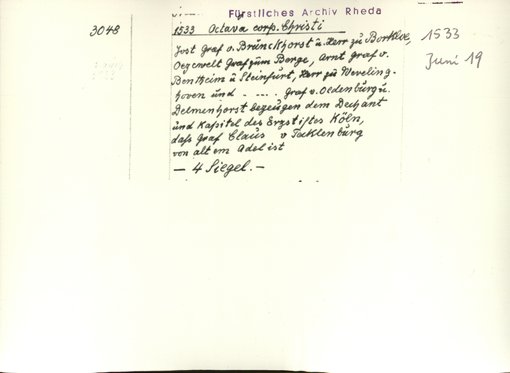 Fürstliches Archiv Rheda
3048
1533 Octava corp. Christi
1533
Juni 19
Jost Graf v. Brunckhorst u. Herr zu Borkloe,
Oszewelt Graf zum Berge, Arnt Graf v.
Bentheim u Steinfurt, Herr zu Weveling-
hoven und - ... . Graf v. Oldenburg u.
Delmenhorst bezeugen dem Dechant
und Kapitel des Erzstiftes Köln,
daß Graf Claus v Tecklenburg
von altem Adel ist
— 4 Siegel. —